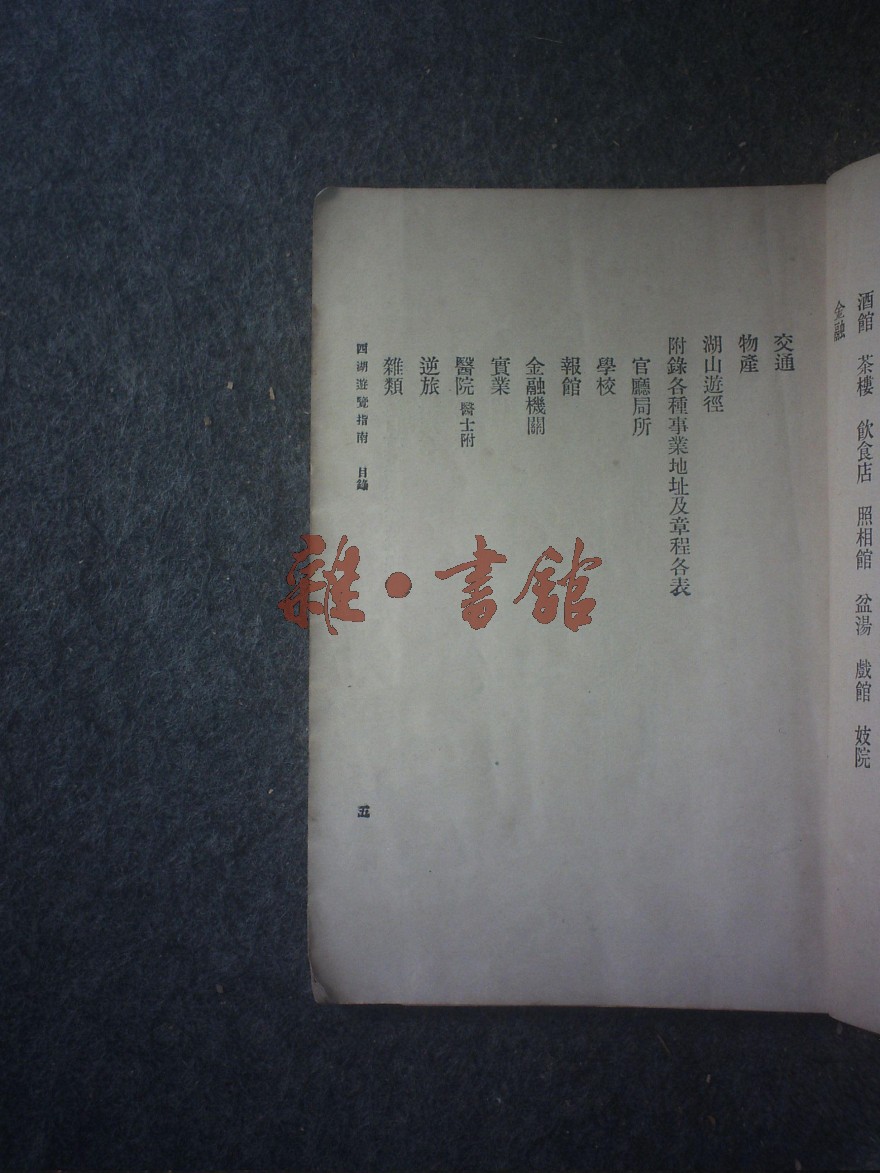 酒館 茶樓 飲食店 照相館 盆湯 戲館 妓院
金融
交通
物產
湖山遊徑
附錄各種事業地址及章程各表
官廳局所
學校
報館
金融機關
實業
醫院 醫士附
逆旅
雜類
西湖遊覽指南 目錄
五
雜·書館